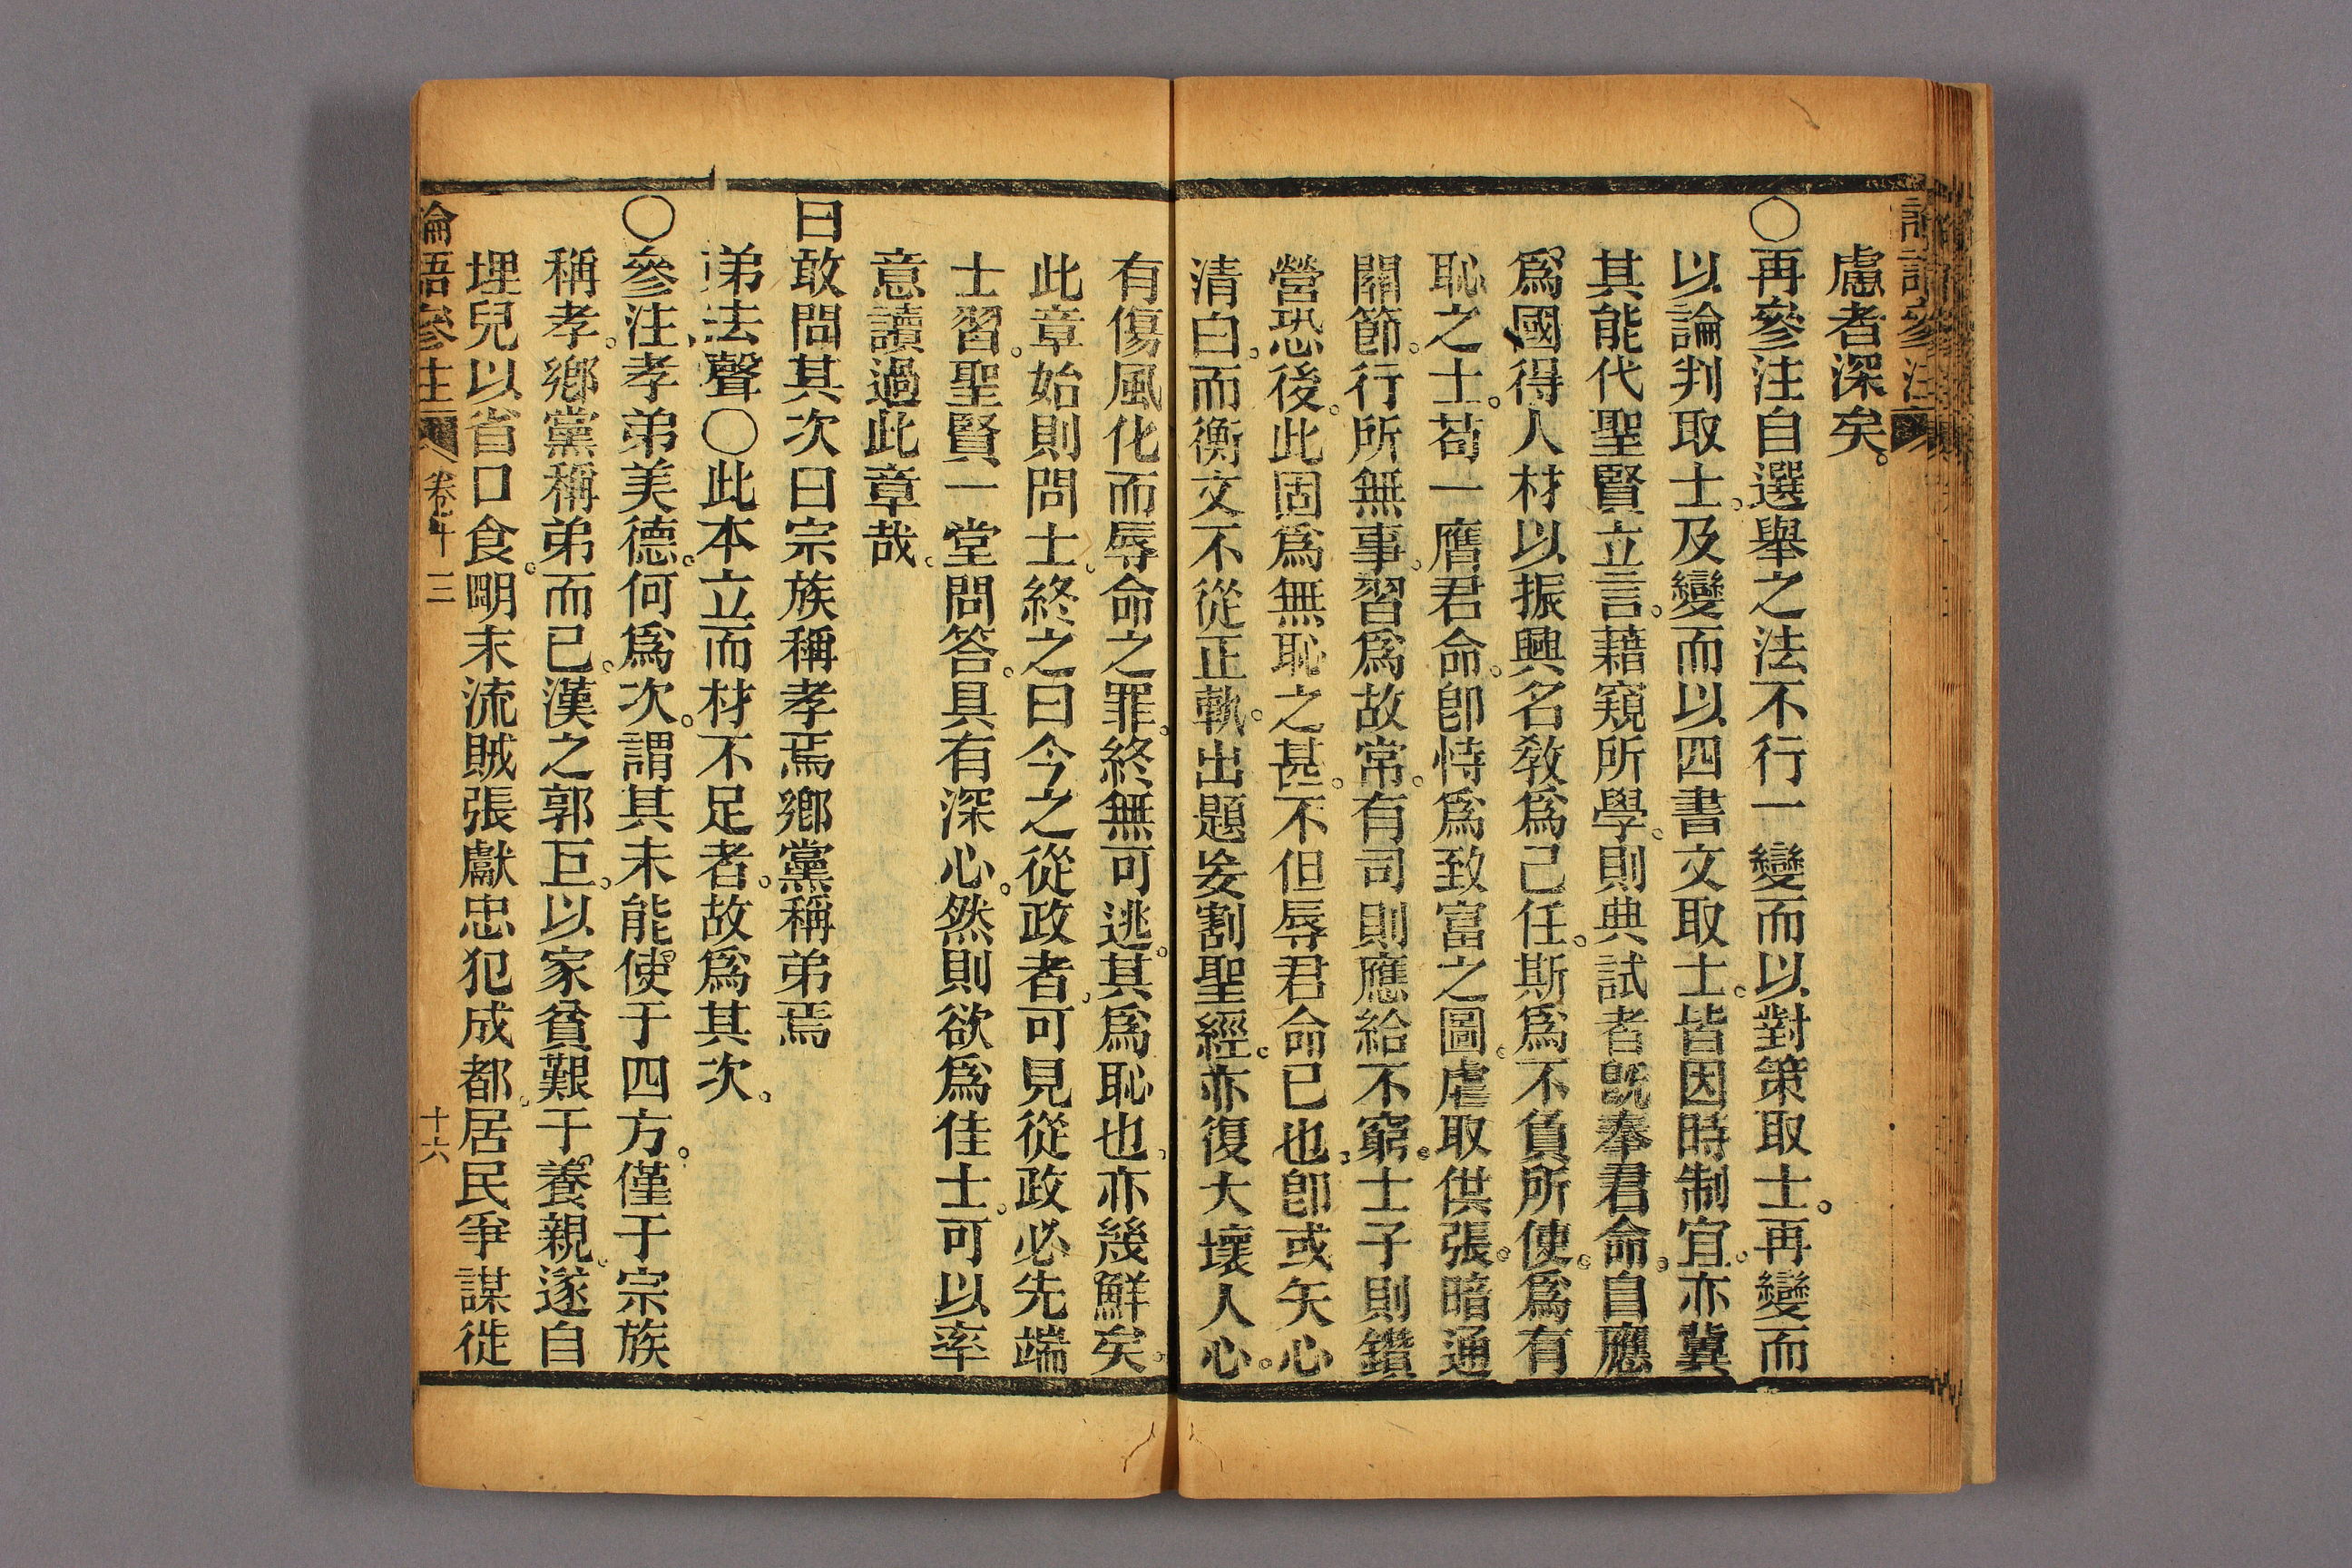 論語參注
慮者深矣。
○再參注自選舉之法不行一變而以對策取士。再變而
以論判取士。及變而以四書文取士。皆因時制宜。亦冀
其能代聖賢立言。藉窺所學。則典試者旣奉君命。自應
爲國得人材以振興名敎爲己任。斯爲不負所使。爲有
恥之士。苟一膺君命。卽恃爲致富之圖。虐取供張。暗通
關節。行所無事。習爲故常。有司則應給不窮。士子則鑽
營恐後。此固爲無恥之甚。不但辱君命已也。卽或矢心
清白。而衡文不從正軌。出題妄割聖經。亦復大壞人心。
有傷風化而辱命之罪。終無可逃。其爲恥也。亦幾鮮矣。
此章始則問士。終之曰今之從政者。可見從政必先端
士習。聖賢一堂問答。具有深心。然則欲爲佳士。可以率
意讀過此章哉。
曰敢問其次曰宗族稱孝焉鄉黨稱弟焉
弟去聲○此本立而材不足者。故爲其次。
○參注孝弟美德。何爲次。謂其未能使于四方。僅于宗族
稱孝。鄉黨稱弟而已。漢之郭巨。以家貧艱于養親。遂自
埋兒以省口食。明末流賊張獻忠犯成都。居民爭謀徙
論語參注 卷十三 十六